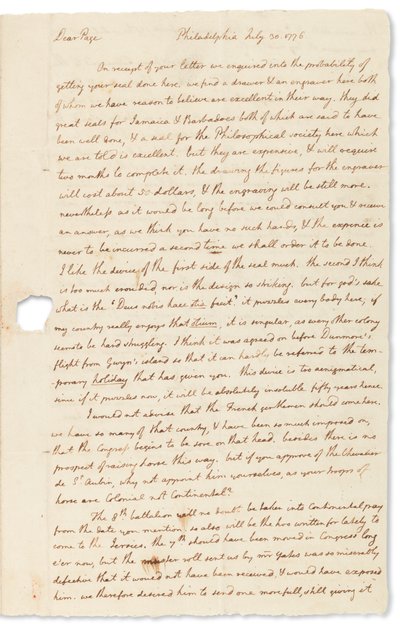 Dear Page Philadelphia July 30. 1776
On receipt of your letter we enquired into the probability of
getting your seal done here. we find a drawer & an engraver here both
of whom we have reason to believe are excellent in their way. they did
great seals for Jamaica & Barbadoes both of which are said to have
been well done, & a seal for the Philosophical society here which
we are told is excellent. but they are expensive, & will require
two months to complete it. the drawing the figures for the engraver
will cost about 50 dollars, & the engraving will be still more.
nevertheless as it would be long before we could consult you & receive
an answer, as we think you have no such hands, & the expence is
never to be incurred a second time we shall order it to be done.
I like the device of the first side of the seal much. the second I think
is too much crouded, nor is the design so striking. but for god's sake
what is the 'Deus nobis haec otia fecit.' it puzzles every body here. if
my country really enjoys that otium, it is singular, as every other colony
seems to be hard struggling. I think it was agreed on before Dunmore's
flight from Gwyn's island so that it can hardly be referred to the tem-
porary holiday that has given you. this device is too aenigmatical,
since if it puzzles now, it will be absolutely insoluble fifty years hence.
I would not advise that the French gentlemen should come here.
we have so many of that country, & have been so much imposed on,
that the Congress begins to be sore on that head. besides there is no
prospect of raising horse this way. but if you approve of the Chevalier
de St. Aubin, why not appoint him yourselves, as your troops of
horse are Colonial not Continental?
The 8th battalion will no doubt be taken into Continental pay
from the date you mention. so also will be the two written for lately to
come to the Jersies. the 7th should have been moved in Congress long
e'er now, but the muster roll sent us by mr Yates was so miserably
defective that it would not have been received, & would have exposed
him. we therefore desired him to send one more full, still giving it